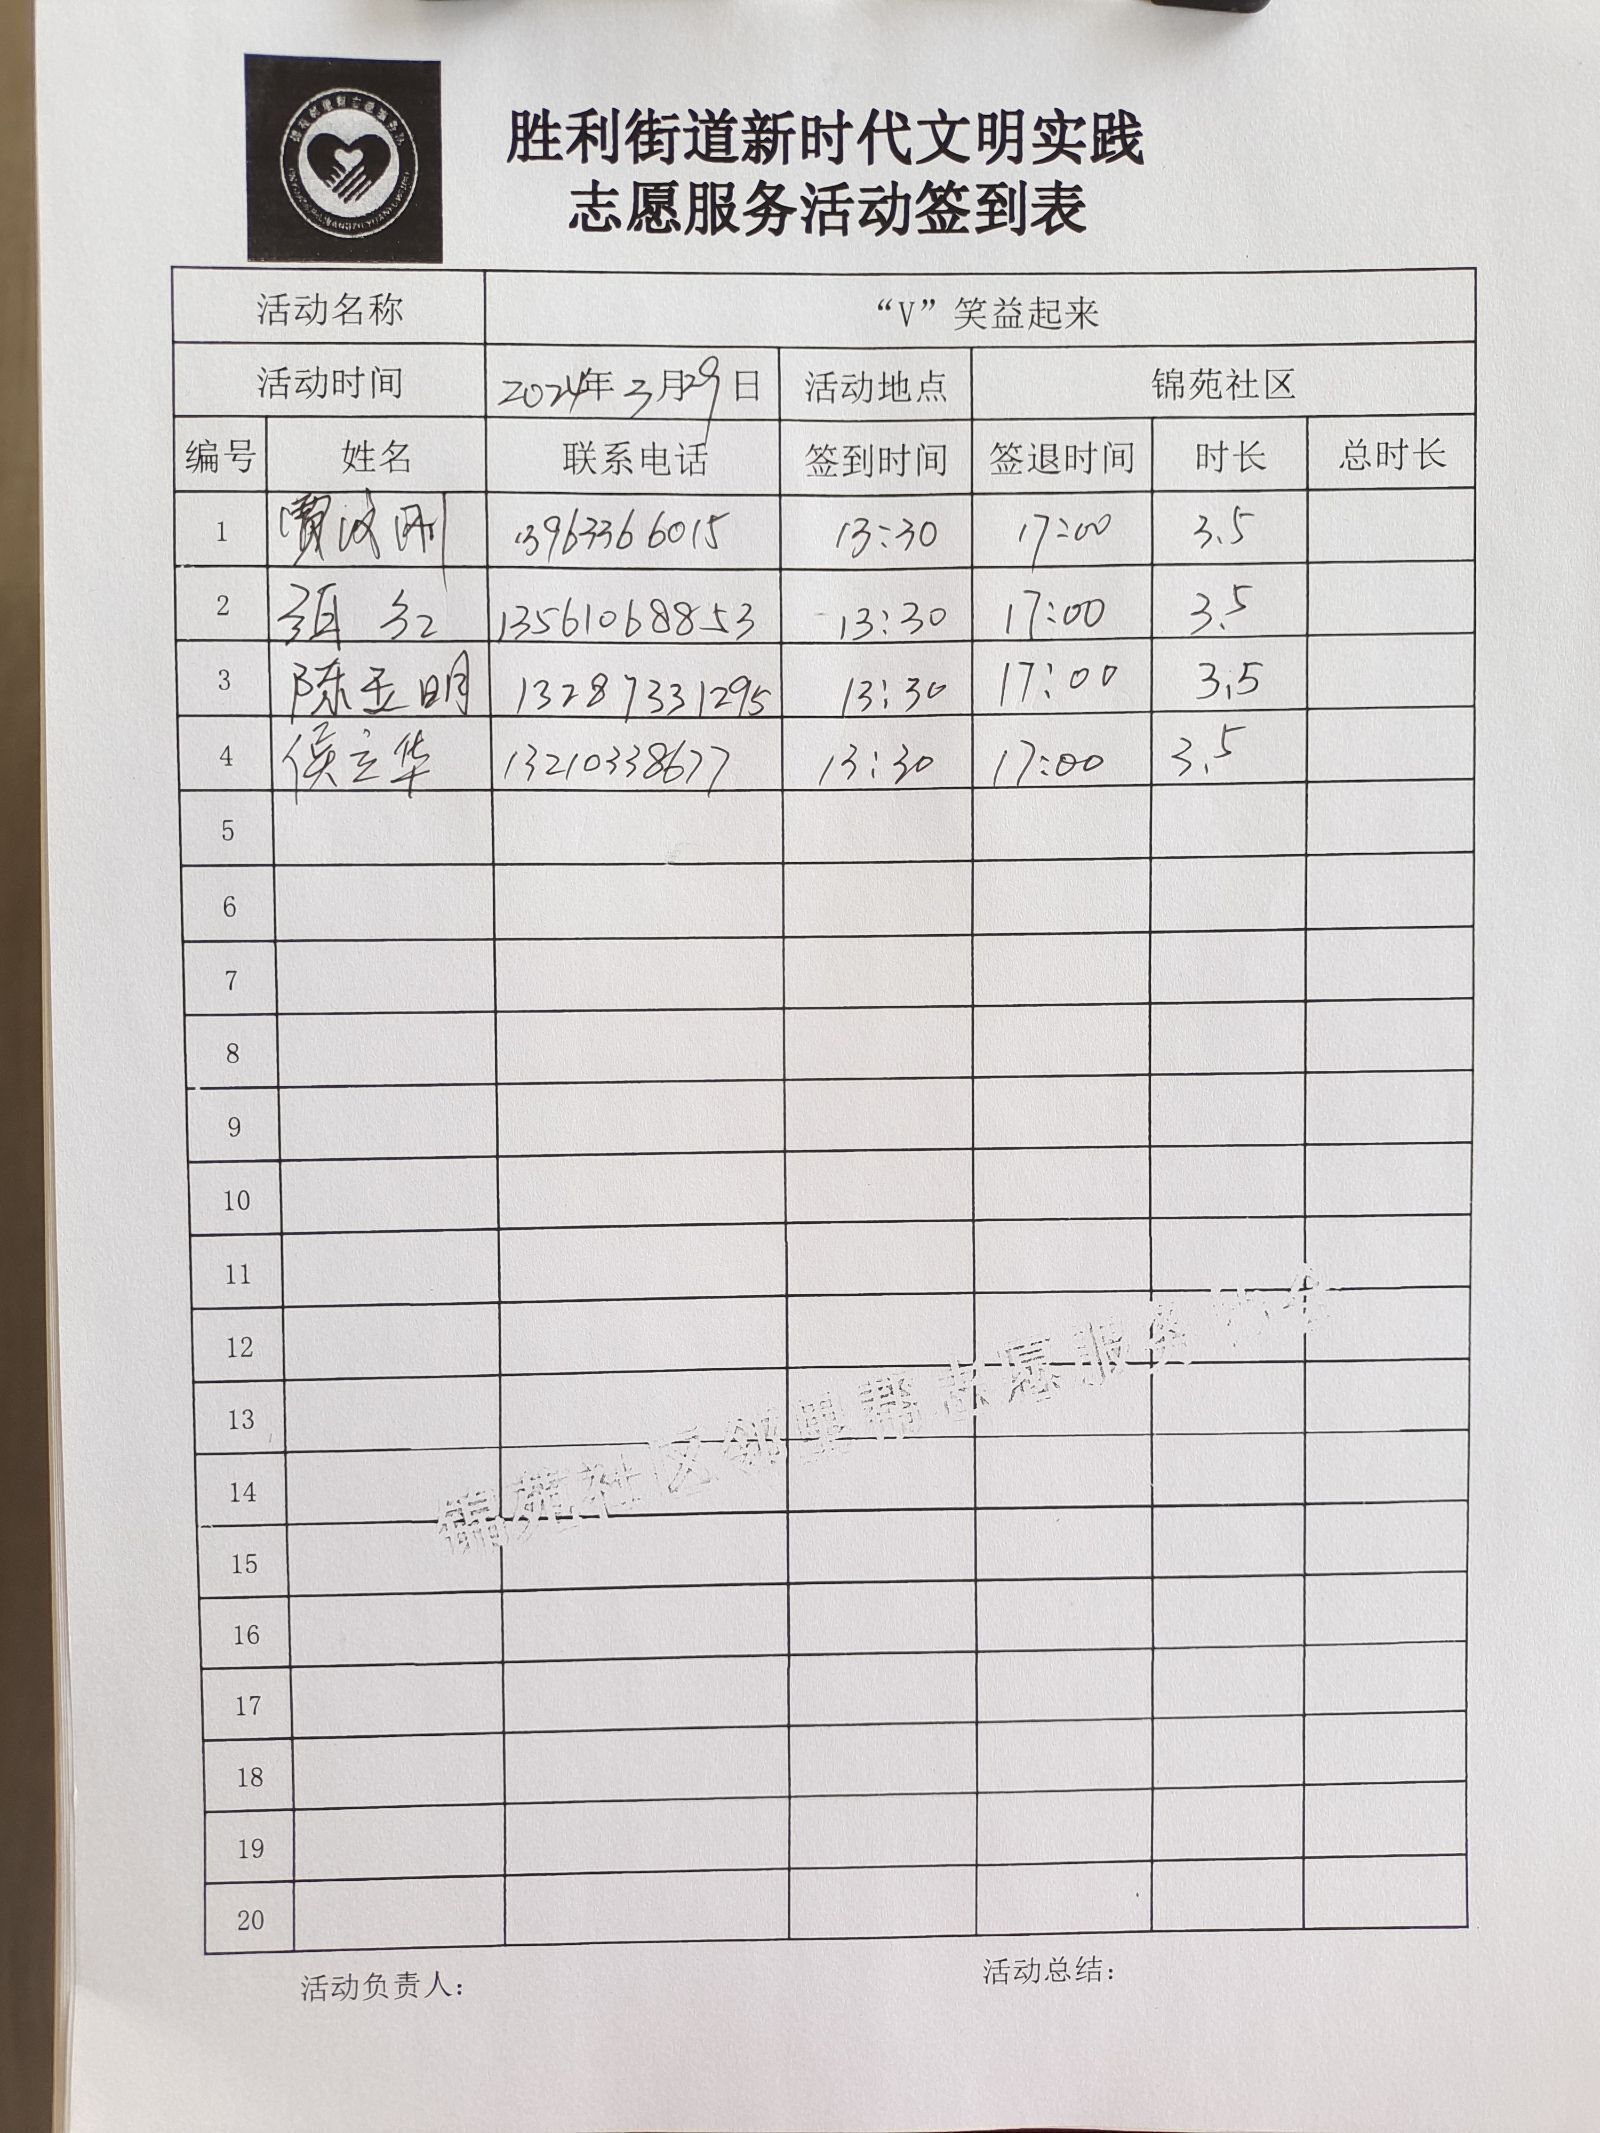 胜利街道新时代文明实践
志愿服务活动签到表
活动名称 “V”笑益起来
活动时间 2024年3月29日 活动地点 锦苑社区
编号 姓名 联系电话 签到时间 签退时间 时长 总时长
1 贾汝刚 13963366015 13:30 17:00 3.5
2 13561068853 13:30 17:00 3.5
3 陈玉明 13287331295 13:30 17:00 3.5
4 侯立华 13210338677 13:30 17:00 3.5
5
6
7
8
9
10
11
12
13
14
15
16
17
18
19
20
锦苑社区邻里帮志愿服务协会
活动负责人: 活动总结: